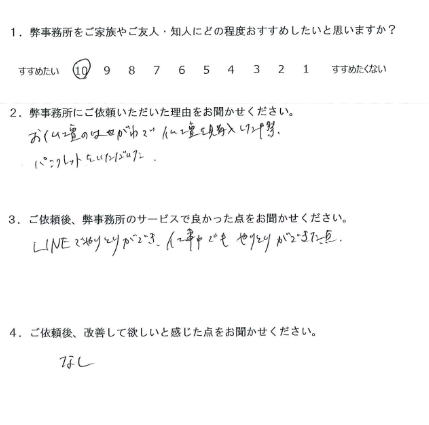 1．弊事務所をご家族やご友人・知人にどの程度おすすめしたいと思いますか？
すすめたい 10 9 8 7 6 5 4 3 2 1 すすめたくない
2．弊事務所にご依頼いただいた理由をお聞かせください。
お仏壇のはせがわで仏壇を購入した際、
パンフレットをいただいた．
3．ご依頼後、弊事務所のサービスで良かった点をお聞かせください。
LINEでやりとりができ、仕事中でもやりとりができた点．
4．ご依頼後、改善して欲しいと感じた点をお聞かせください。
なし